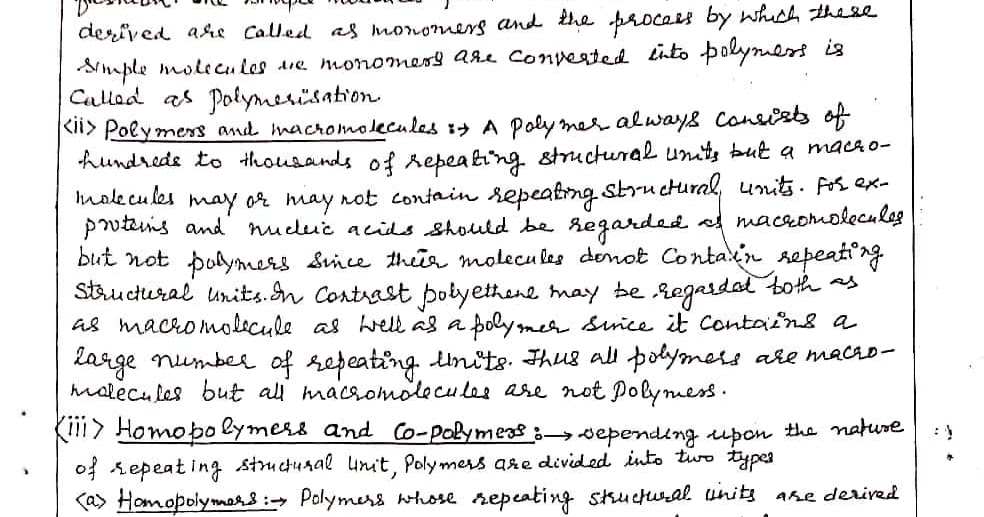 derived are called as monomers and the process by which these
simple molecules ie monomers are converted into polymers is
Called as Polymerisation
<ii> Polymers and macromolecules :→ A Polymer always consists of
hundreds to thousands of repeating structural units but a macro-
molecules may or may not contain repeating structural units. For ex-
proteins and nucleic acids should be regarded as macromolecules
but not polymers since their molecules donot Contain repeating
Structural units. In Contrast polyethene may be regarded both as
as macromolecule as well as a polymer since it contains a
large number of repeating units. Thus all polymers are macro-
molecules but all macromolecules are not Polymers.
<iii> Homopolymers and Co-polymers :→ Depending upon the nature
of repeating structural unit, Polymers are divided into two types
<a> Homopolymers :→ Polymers whose repeating structural units are derived